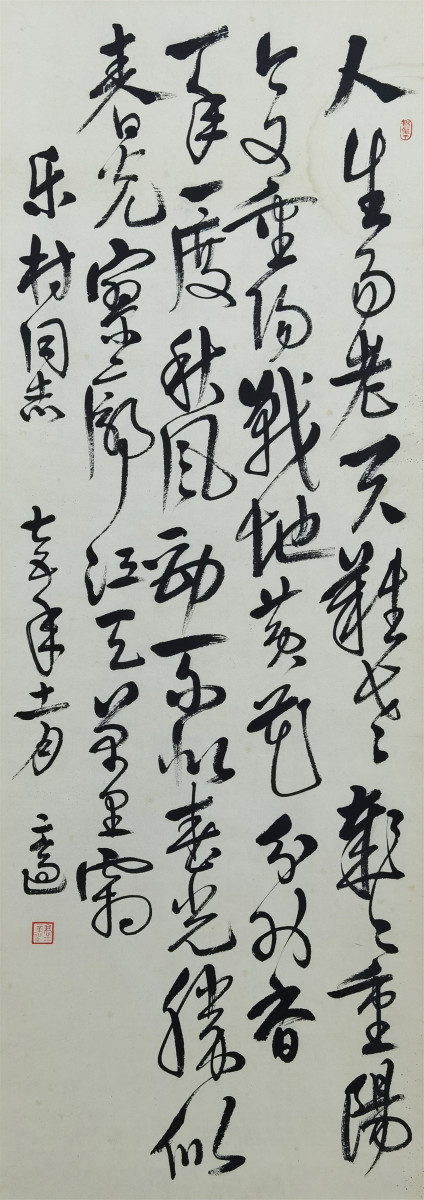 人生易老天難老歲歲重陽
今又重陽戰地黃花分外香
一年一度秋风劲不似春光勝似
春光寥廓江天萬里霜
乐村同志 七五年十一月